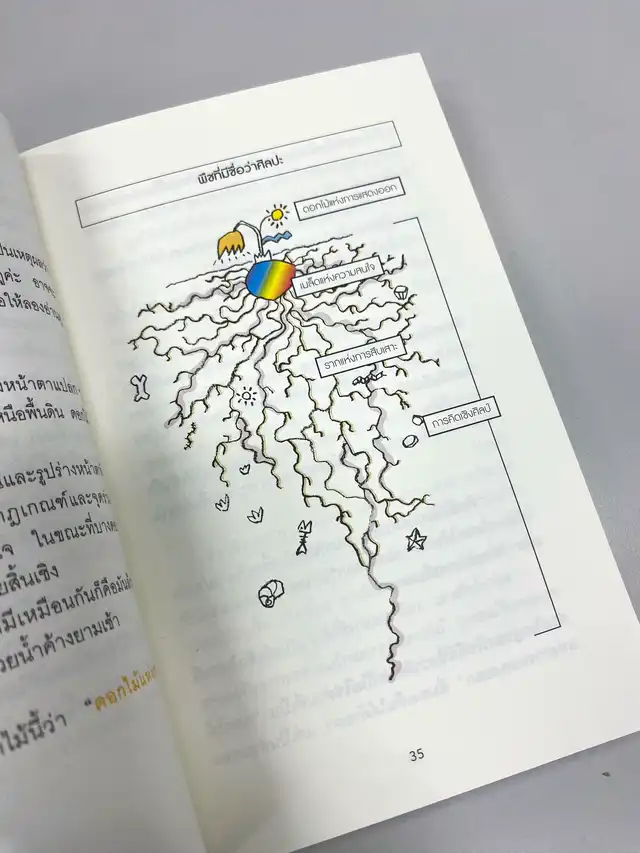 ูค่ะ
หน้าตาแปลก
หนือพื้นดิน
และรูปร่างหน้าตา
กฎเกณฑ์และจุด
จ ในขณะที่บาง
ยสิ้นเชิง
มีเหมือนกันก็คือมัน
วยน้ำค้างยามเช้า
ไม้นี้ว่า "ดอกไม้แห่ง
พืชที่มีชื่อว่าศิลปะ
ดอกไม้แห่งการแสดงออก
เมล็ดแห่งความสนใจ
รากแห่งการสืบเสาะ
การคิดเชิงศิลป์
35